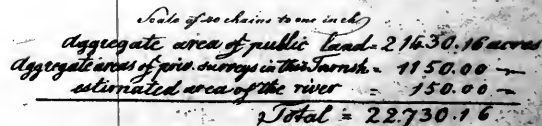 Scale of 20 chains to one inch
Aggregate area of public Land = 21430.16 acres
Aggregate areas of priv. surveys in this Townsh = 1150.00 "
estimated area of the river = 150.00 "
Total = 22.730.16